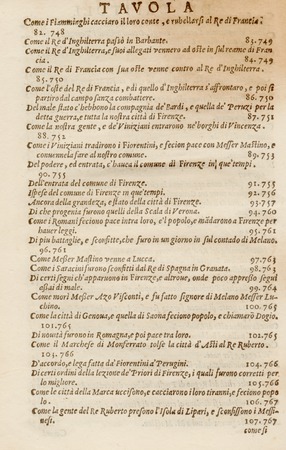 TAVOLA
Come i Fiamminghi cacciaro il loro conte, e rubellarsi al Re di Francia.
82. 748
Come il Re d'Inghilterra passò in Barbante. 83.749
Come il Re d'Inghilterra, e suoi allegati vennero ad oste in sul reame di Francia. 84.749
Come il Re di Francia con sua oste venne contro al Re d'Inghilterra.
85.750
Come l'oste del Re di Francia, e di quello d'Inghilterra s'affrontaro, e poi si
partiro dal campo sanza combattere. 86.750
Del male stato c'hebbono la compagnia de' Bardi, e quella de' Peruzi per la
detta guerra, e tutta la nostra città di Firenze. 87.751
Come la nostra gente, e de' Viniziani entrarono ne' borghi di Vincenza.
88.752
Come i Viniziani tradirono i Fiorentini, e fecion pace con Messer Mastino, e
convennela fare al nostro comune. 89.753
Del podere, ed entrata, c'hauea il comune di Firenze in que' tempi.
90.755
Dell'entrata del comune di Firenze. 91.755
Ispese del comune di Firenze in que' tempi. 92.756
Ancora della grandeza, e stato della città di Firenze. 93.757
Di che progenia furono quelli della Scala di Verona. 94.760
Come i Romani fecciono pace intra loro, e'l popolo, e mādarono a Firenze per
hauer leggi. 95.761
Di piu battaglie, e sconfitte, che furo in un giorno in sul contado di Melano.
96.761
Come Messer Mastino venne a Lucca. 97.763
Come i Saracini furono sconfitti dal Re di Spagna in Granata. 98.763
Di certi segni ch'apparuono in Firenze, e altroue, onde poco appresso seguì
assai di male. 99.764
Come morì Messer Azo Visconti, e fu fatto signore di Melano Messer Luchino. 100.765
Come la città di Genoua, e quella di Saona feciono popolo, e chiamarò Dogio.
101.765
Di nouità furono in Romagna, e poi pace tra loro. 102.765
Come il Marchese di Monferrato tolse la città d'Asti al Re Ruberto.
103.766
D'accordo, e lega fatta da' Fiorentini a' Perugini. 104.766
Di certi ordini della lezione de' Priori di Firenze, i quali furono corretti per
lo migliore. 105.766
Come le città della Marca uccisono, e cacciarono il loro tiranni, e feciono popolo. 106.766
Come la gente del Re Ruberto presono l'Isola di Lipari, e sconfissono i Messinesi. 107.767
come si